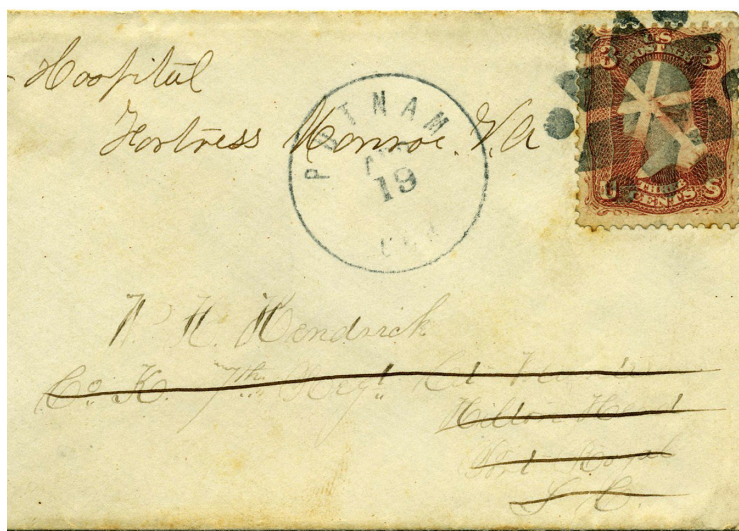 Hospital
Fortress Monroe. Va
PUTNAM
19
3 U.S. 3
POSTAGE
THREE
CENTS
U S
W. H. Hendrick
Co. K. 7th Regt
Hilton Head
Port Royal
S. C.